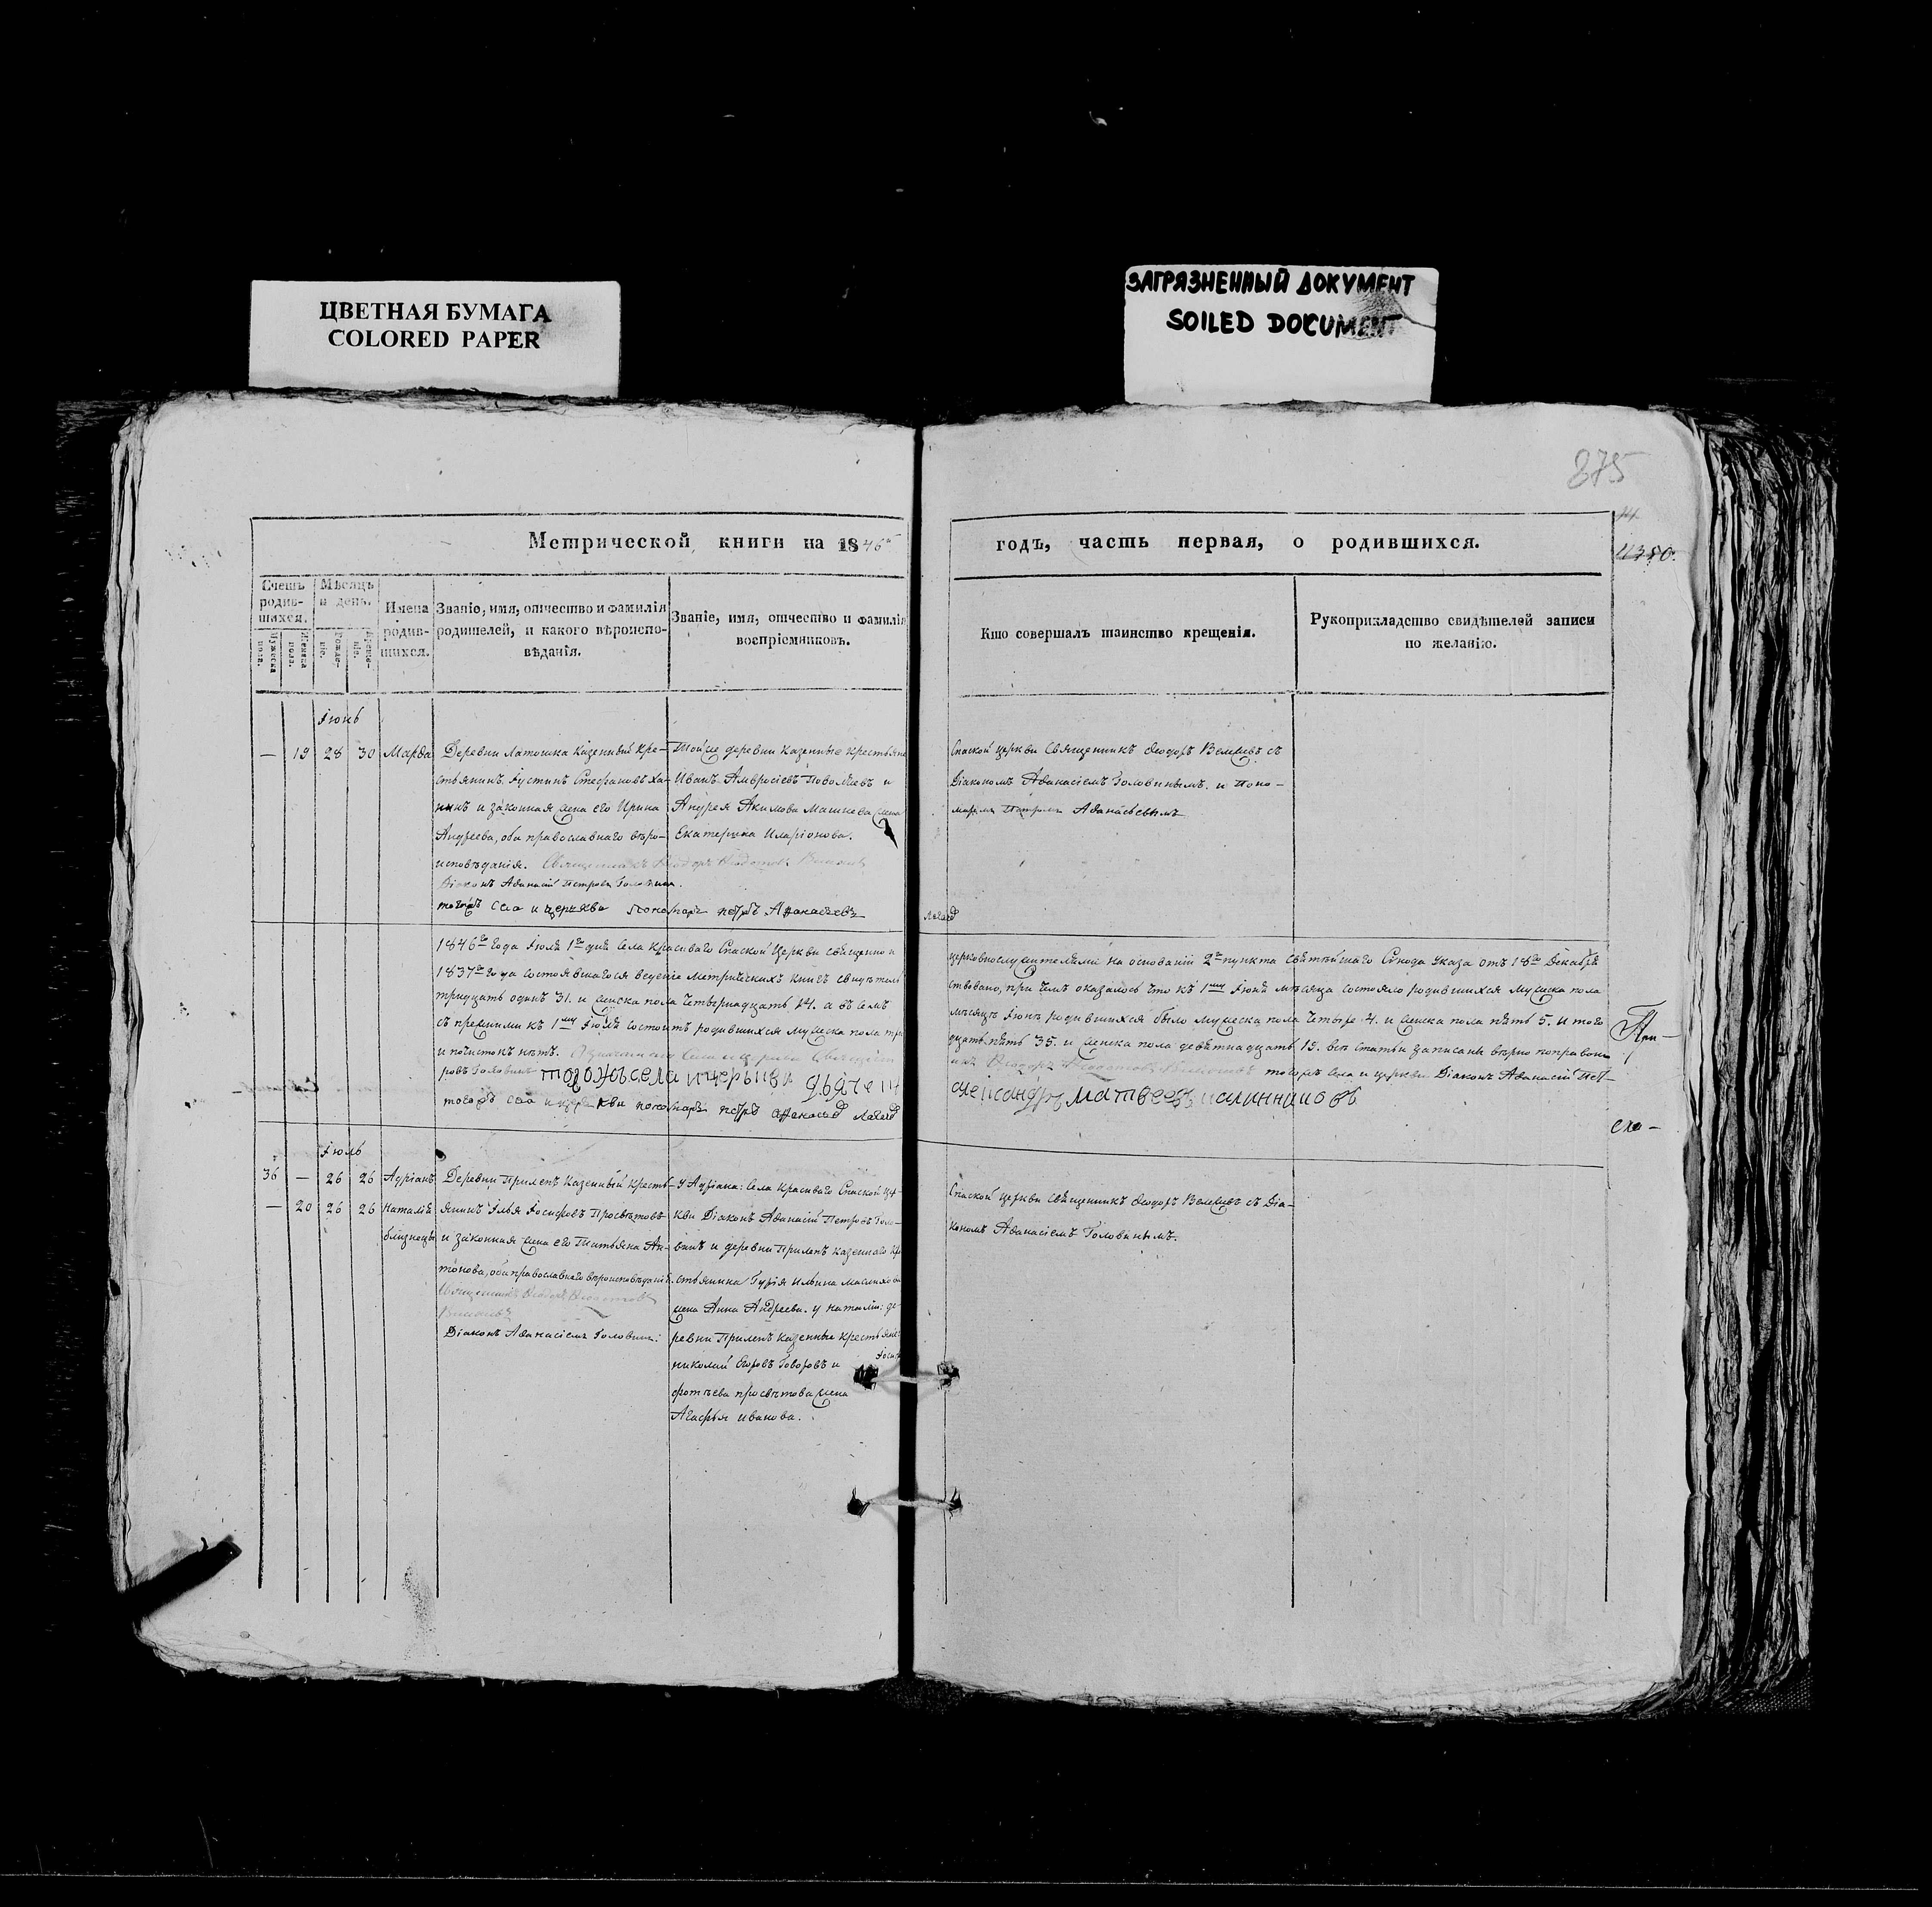 ЦВЕТНАЯ БУМАГА
COLORED PAPER
ЗАГРЯЗНЕННЫЙ ДОКУМЕНТ
SOILED DOCUMENT
875
Метрической книги на 1846й
годъ, часть первая, о родившихся.
Счетъ родив-шихся.
Мужеска пола.
Женска пола.
Мѣсяцъ и день.
Рожде-ніе.
Креще-ніе.
Имена родив-шихся.
Званіе, имя, отчество и фамилія
родителей, и какого вѣроиспо-
вѣданія.
Званіе, имя, отчество и фамилія
воспріемниковъ.
Кто совершалъ таинство крещенія.
Рукоприкладство свидѣтелей записи
по желанію.
Іюнь
— 19 28 30 Марѳа
Деревни Латошка казенный кре-
стьянинъ Іустинъ Стефановъ Ха-
нинъ и законная жена его Ирина
Андреева, оба православнаго вѣро-
исповѣданія. Священникъ Ѳеодоръ
Діаконъ Аѳанасій Петровъ Головинъ.
тогожъ села и церкви пономарь петръ Афанасьевъ
Тойже деревни казенные крестьяне
Иванъ Амвросіевъ и
Андрея Акимова Машкова жена
Екатерина Иларіонова.
Спаской церкви Священникъ Ѳеодоръ съ
Діакономъ Аѳанасіемъ Головинымъ. и Поно-
маремъ Петромъ Аѳанасьевымъ
1846го года Іюля 1го дня Села Красиваго Спаской Церкви священно и
церковнослужителями на основаніи 2го пункта Святѣйшаго Сѵнода Указа отъ 18го Декабря
1837го года состоявшагося веденіе метрическихъ книгъ свидѣтель
ствовано, при чемъ оказалось что къ 1му Іюня мѣсяца состояло родившихся мужеска пола
тридцать одинъ 31. и женска пола четырнадцать 14. а въ семъ
мѣсяцѣ Іюнѣ родившихся было мужеска пола четыре 4. и женска пола пять 5. Итого
съ прежними къ 1му Іюля состоитъ родившихся мужеска пола три
дцать пять 35. и женска пола девятнадцать 19. всѣ статьи записаны вѣрно поправокъ
и почистокъ нѣтъ. Означеннаго Села и церкви Священ
никъ Ѳеодоръ тогожъ села и церкви Діаконъ Аѳанасій Пет-
ровъ Головинъ тогожъ села и церкви дьячекъ
Александръ Матвеевъ
тогожъ села и церкви пономарь петръ
При-
Іюль
36 — 26 26 Адріанъ
— 20 26 26 Наталія
близнецы
Деревни Прилепъ казенный кресть-
янинъ Илья Іосифовъ Просвѣтовъ
и законная жена его Татьяна Ан-
тонова, оба православнаго вѣроисповѣданія.
Священникъ Ѳеодоръ
Діаконъ Аѳанасіемъ Головинъ.
У Адріана: Села Красиваго Спаской Цер-
кви Діаконъ Аѳанасій Петровъ Голо-
винъ и деревни Прилепъ казеннаго кре
стьянина Гурія Ильина
жена Анна Андреева. у Наталіи: де-
ревни Прилепъ казенные крестьяне
Николай Егоровъ Говоровъ и
просвѣтова жена
Агафья Иванова.
Спаской церкви Священникъ Ѳеодоръ съ Діа-
кономъ Аѳанасіемъ Головинымъ.